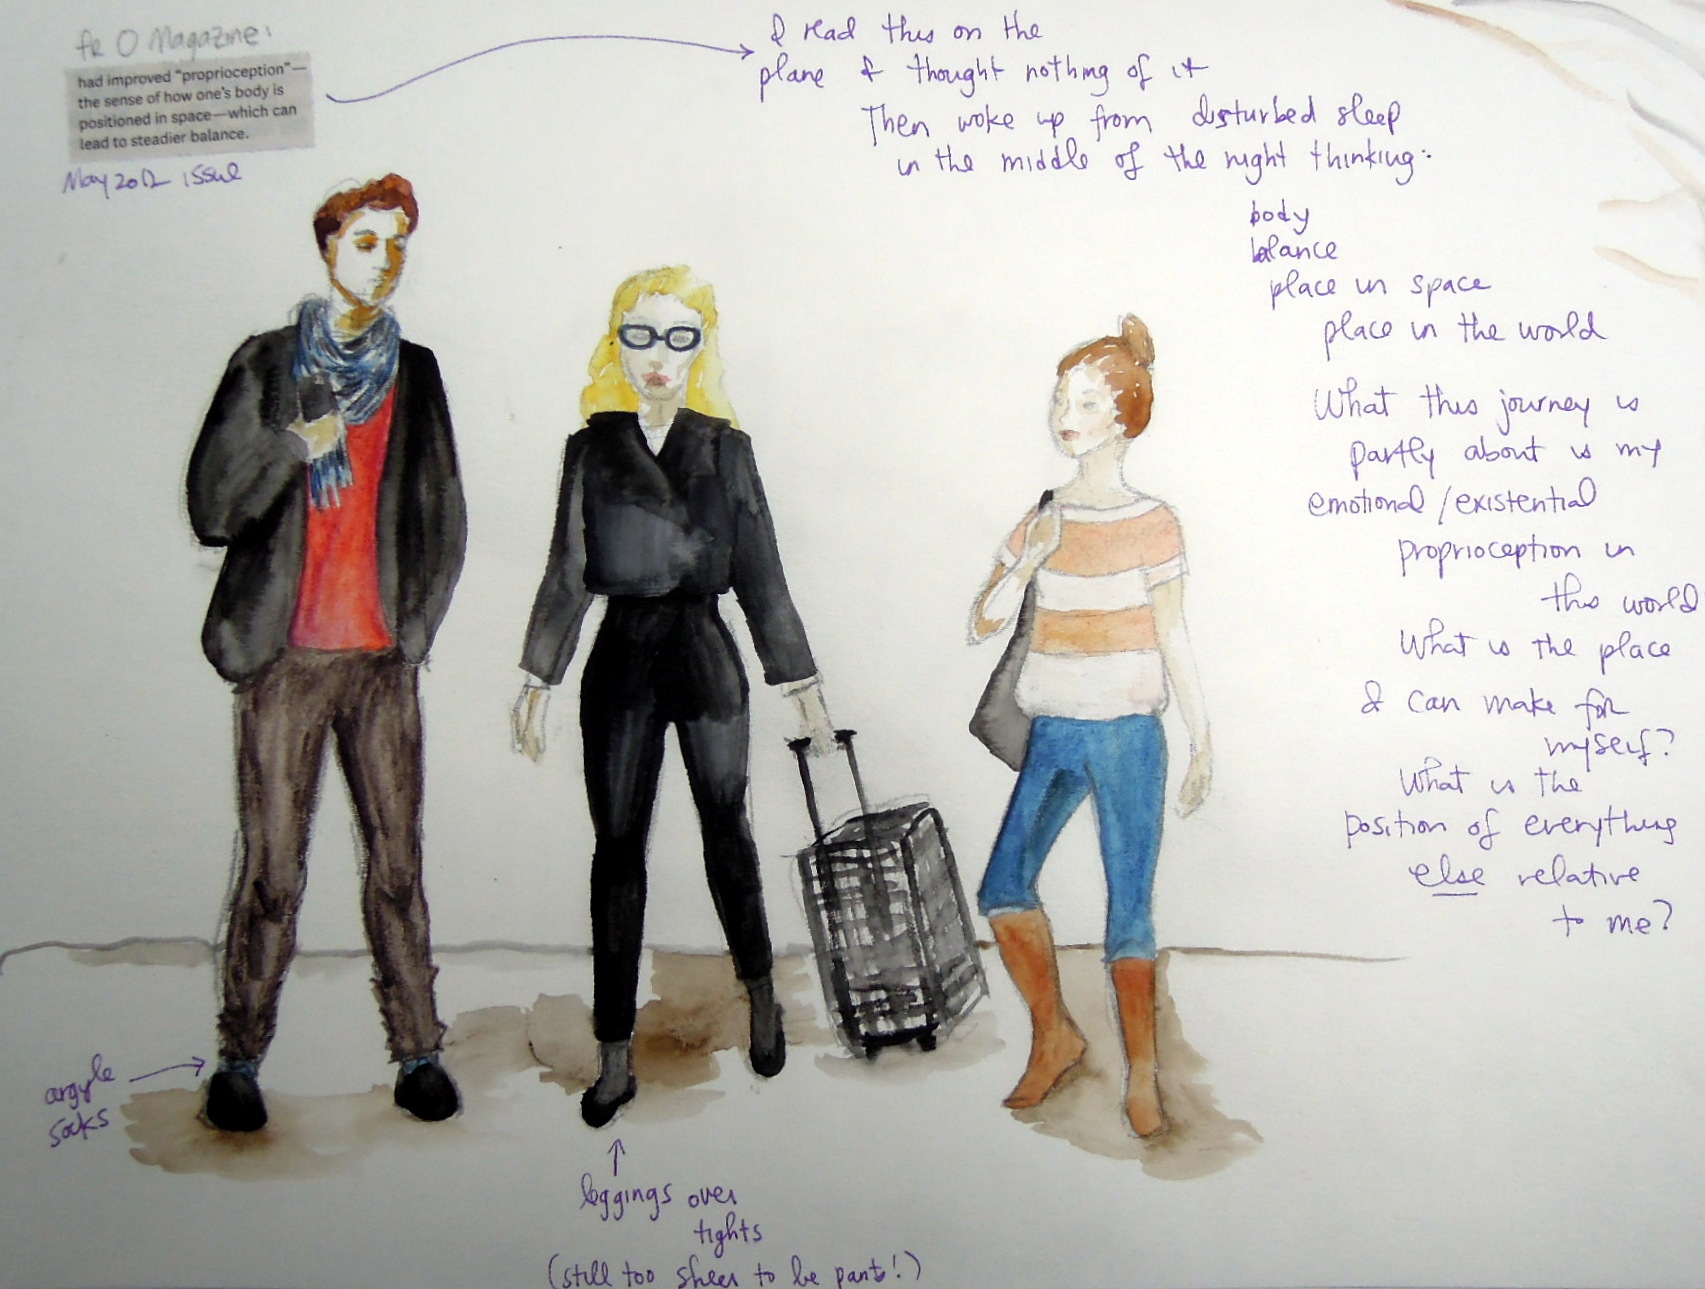 fr O Magazine:
had improved "proprioception"—
the sense of how one's body is
positioned in space—which can
lead to steadier balance.
May 2012 issue
I read this on the
plane & thought nothing of it
Then woke up from disturbed sleep
in the middle of the night thinking:
body
balance
place in space
place in the world
What this journey is
partly about is my
emotional/existential
proprioception in
this world
What is the place
I can make for
myself?
What is the
position of everything
else relative
to me?
argyle
socks
leggings over
tights
(still too sheer to be pants!)